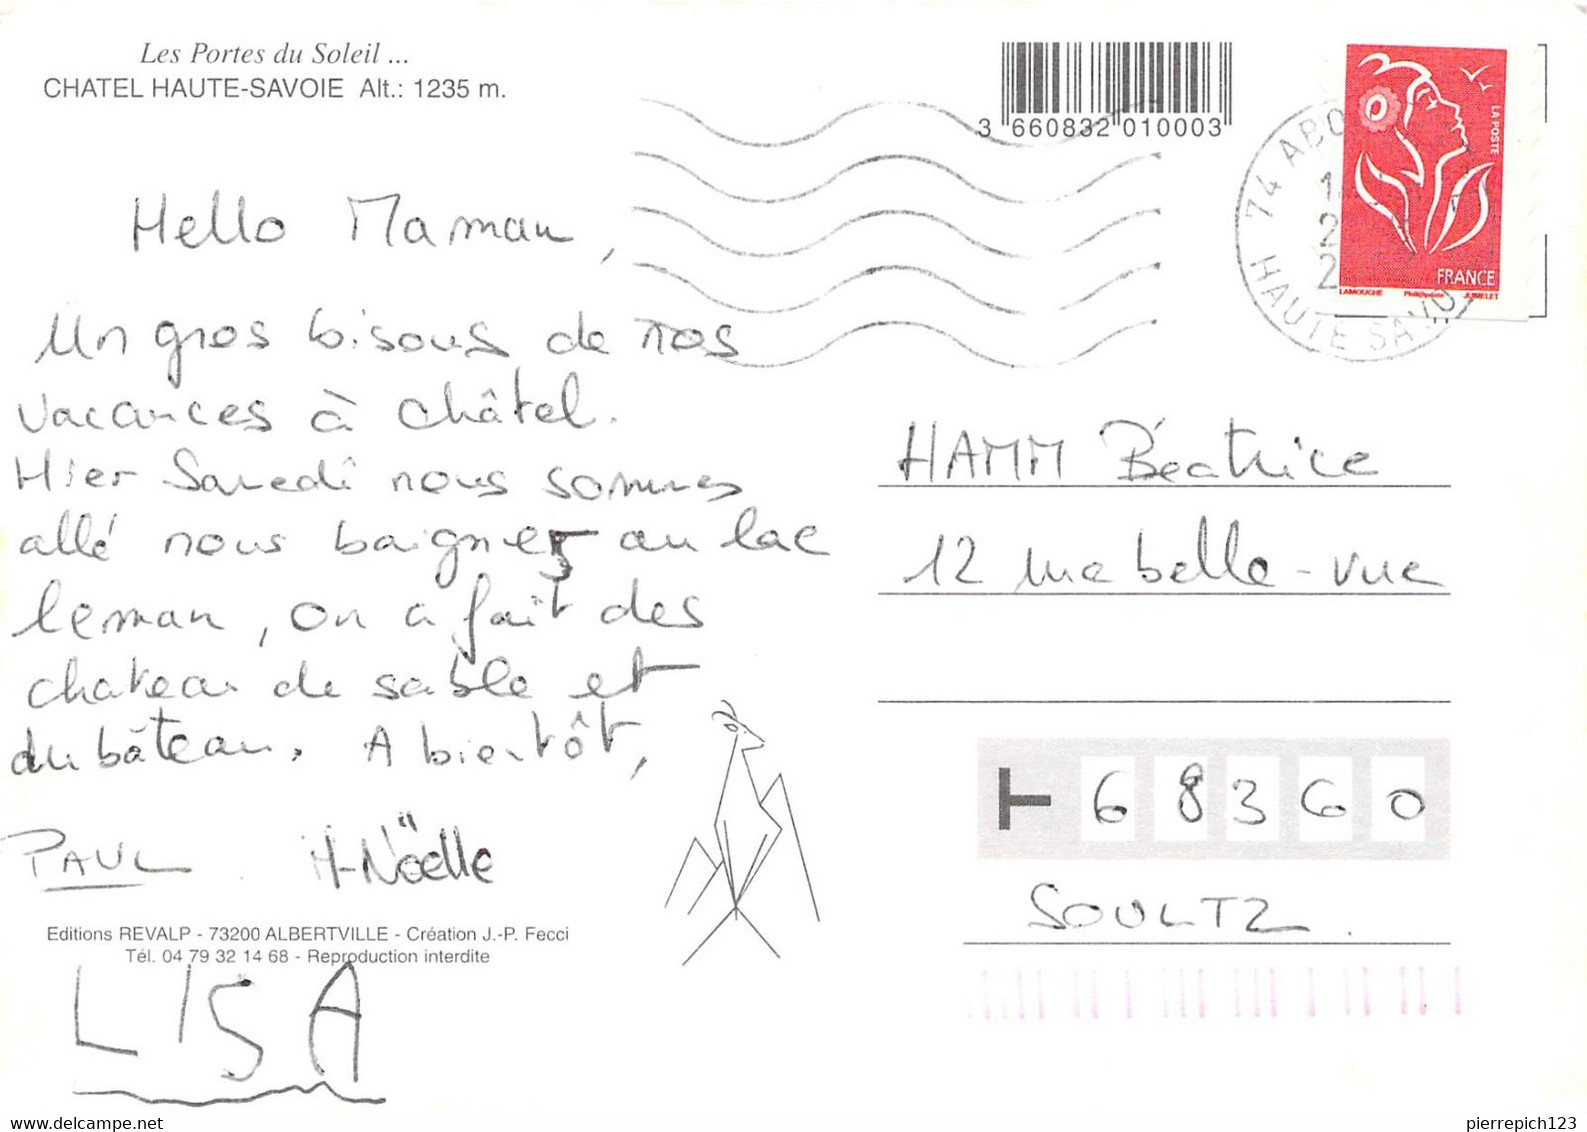 Les Portes du Soleil ...
CHATEL HAUTE-SAVOIE Alt.: 1235 m.
3 660832 010003
LA POSTE
FRANCE
LAMOUCHE Phil@poste JUMELET
74 ABO
HAUTE SAVO
1
2
2
Hello Maman,
Un gros bisous de nos
vacances à châtel.
Hier Samedi nous sommes
allé nous baigner au lac
leman, on a fait des
chateau de sable et
du bâteau. A bientôt,
PAUL M-Nöelle
Editions REVALP - 73200 ALBERTVILLE - Création J.-P. Fecci
Tél. 04 79 32 14 68 - Reproduction interdite
LISA
HAMM Béatrice
12 rue belle-vue
68360
SOULTZ.
pierrepich123